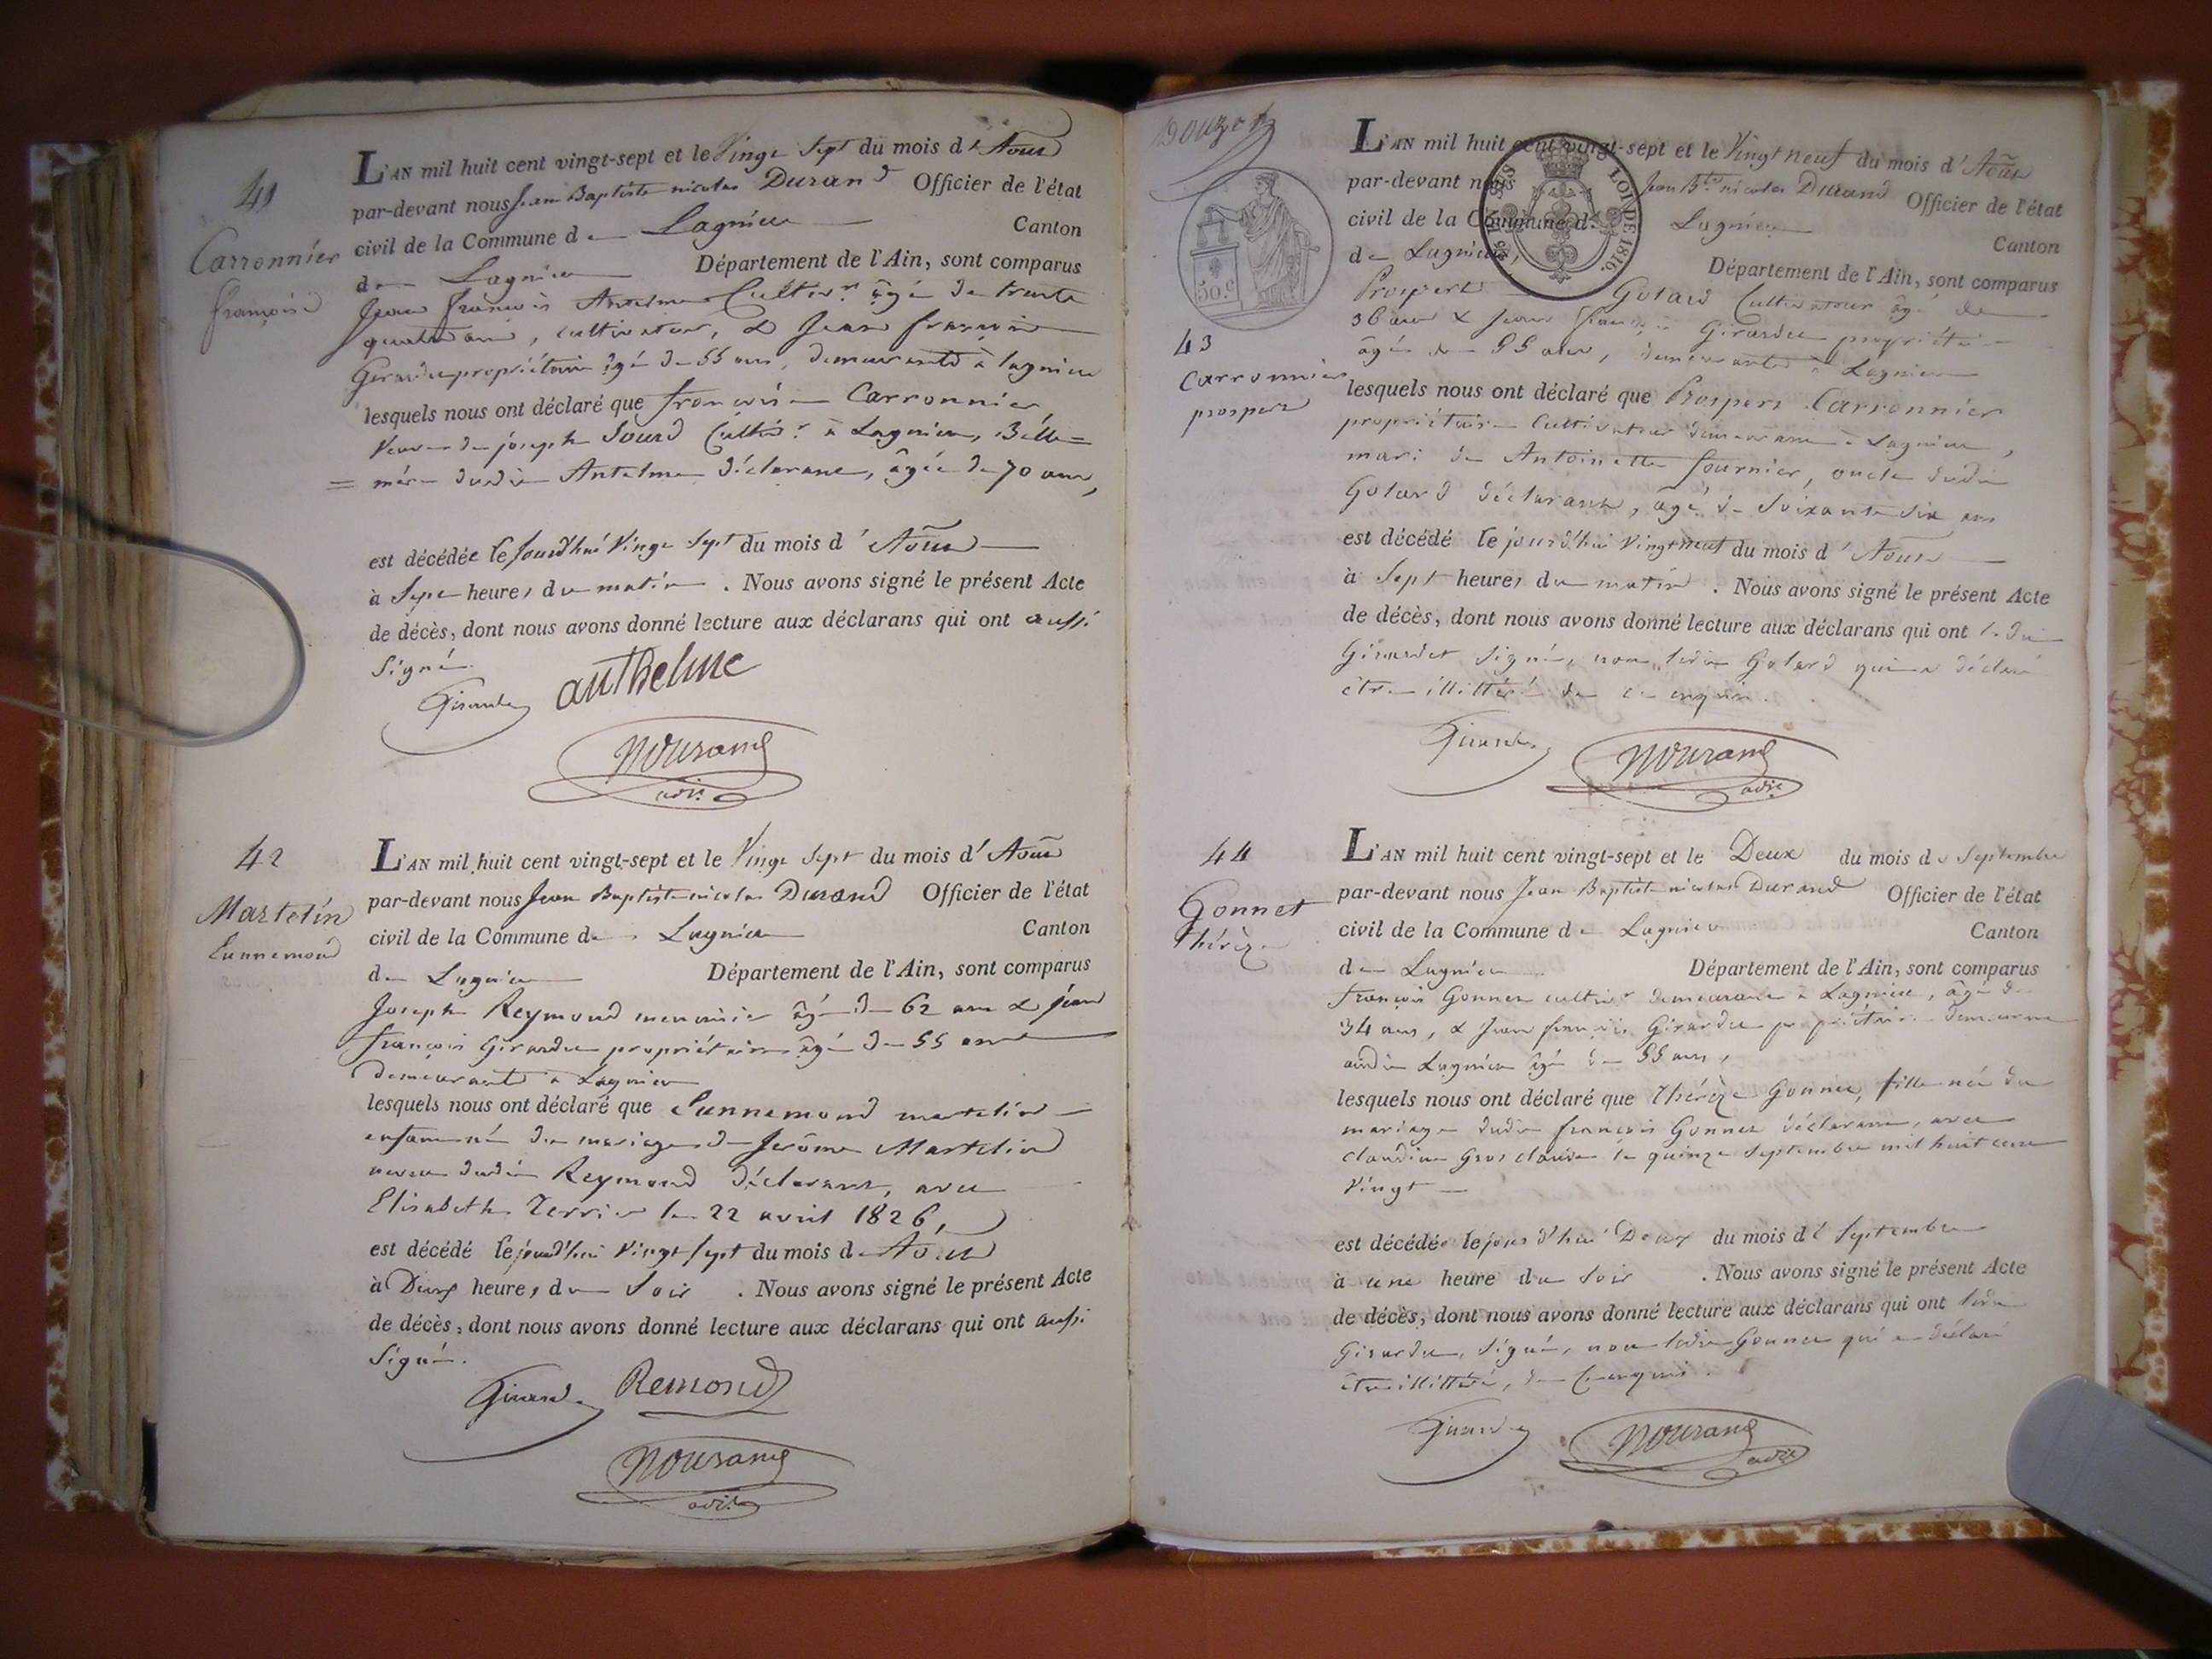 41
Carronnier
françoise
L'AN mil huit cent vingt-sept et le Vingt Sept du mois d'Aout
par-devant nous Jean Baptiste nicolas Durand Officier de l'état
civil de la Commune de Lagnieu Canton
de Lagnieu Département de l'Ain, sont comparus
Jean françois Antelme Cultivr. âgé de trente
quatre ans, cultivateur, & Jean françois
Girardet propriétaire âgé de 55 ans, demeurants à lagnieu
lesquels nous ont déclaré que françoise Carronnier,
Veuve de joseph Sourd Cultivr. à Lagnieu, Belle=
= mère dudit Antelme déclarant, âgée de 70 ans,
est décédée le jourd'hui Vingt Sept du mois d'Aout
à Sept heures du matin. Nous avons signé le présent Acte
de décès, dont nous avons donné lecture aux déclarans qui ont aussi
Signé.
Girardet anthelme
NDurand
adjt.
42
Martelin
Eunnemond
L'AN mil huit cent vingt-sept et le Vingt Sept du mois d'Aout
par-devant nous Jean Baptiste nicolas Durand Officier de l'état
civil de la Commune de Lagnieu Canton
de Lagnieu Département de l'Ain, sont comparus
Joseph Reymond menuisier âgé de 62 ans & jean
françois Girardet propriétaire âgé de 55 ans
demeurants à Lagnieu
lesquels nous ont déclaré que Eunnemond martelin
enfant né du mariage de Jerôme Martelin
neveu dudit Reymond déclarant, avec
Elisabeth Terrier le 22 avril 1826,
est décédé le jourd'hui Vingt sept du mois d'Aout
à Deux heures du Soir. Nous avons signé le présent Acte
de décès, dont nous avons donné lecture aux déclarans qui ont aussi
Signé.
Girardet Remond
NDurand
adjt.
50.c
LOI DE 1816.
43
Carronnier
prosper
L'AN mil huit cent vingt-sept et le Vingt neuf du mois d'Aout
par-devant nous Jean Bte. nicolas Durand Officier de l'état
civil de la Commune de Lagnieu Canton
de Lagnieu, Département de l'Ain, sont comparus
Prosper Golard Cultivateur âgé de
36 ans & Jean françois Girardet propriétaire
âgé de 55 ans, demeurants à Lagnieu
lesquels nous ont déclaré que Prosper Carronnier
propriétaire Cultivateur demeurant à Lagnieu,
mari de Antoinette fournier, oncle dudit
Golard déclarant, âgé de Soixante dix ans
est décédé le jourd'hui Vingt neuf du mois d'Aout
à Sept heures du matin. Nous avons signé le présent Acte
de décès, dont nous avons donné lecture aux déclarans qui ont ledit
Girardet Signé, non ledit Golard qui a déclaré
être illittéré de ce enquis.
Girardet
NDurand
adjt.
44
Gonnet
Thérèze
L'AN mil huit cent vingt-sept et le Deux du mois de Septembre
par-devant nous Jean Baptiste nicolas Durand Officier de l'état
civil de la Commune de Lagnieu Canton
de Lagnieu Département de l'Ain, sont comparus
françois Gonnet cultivr. demeurant à Lagnieu, âgé de
34 ans, & Jean françois Girardet propriétaire demeurant
audit Lagnieu âgé de 55 ans,
lesquels nous ont déclaré que Thérèze Gonnet, fille née du
mariage dudit françois Gonnet déclarant, avec
claudine Gros claude le quinze Septembre mil huit cent
Vingt
est décédée le jourd'hui Deux du mois de Septembre
à une heure du Soir. Nous avons signé le présent Acte
de décès, dont nous avons donné lecture aux déclarans qui ont ledit
Girardet, Signé, non ledit Gonnet qui a déclaré
être illittéré, de ce enquis.
Girardet
NDurand
adjt.